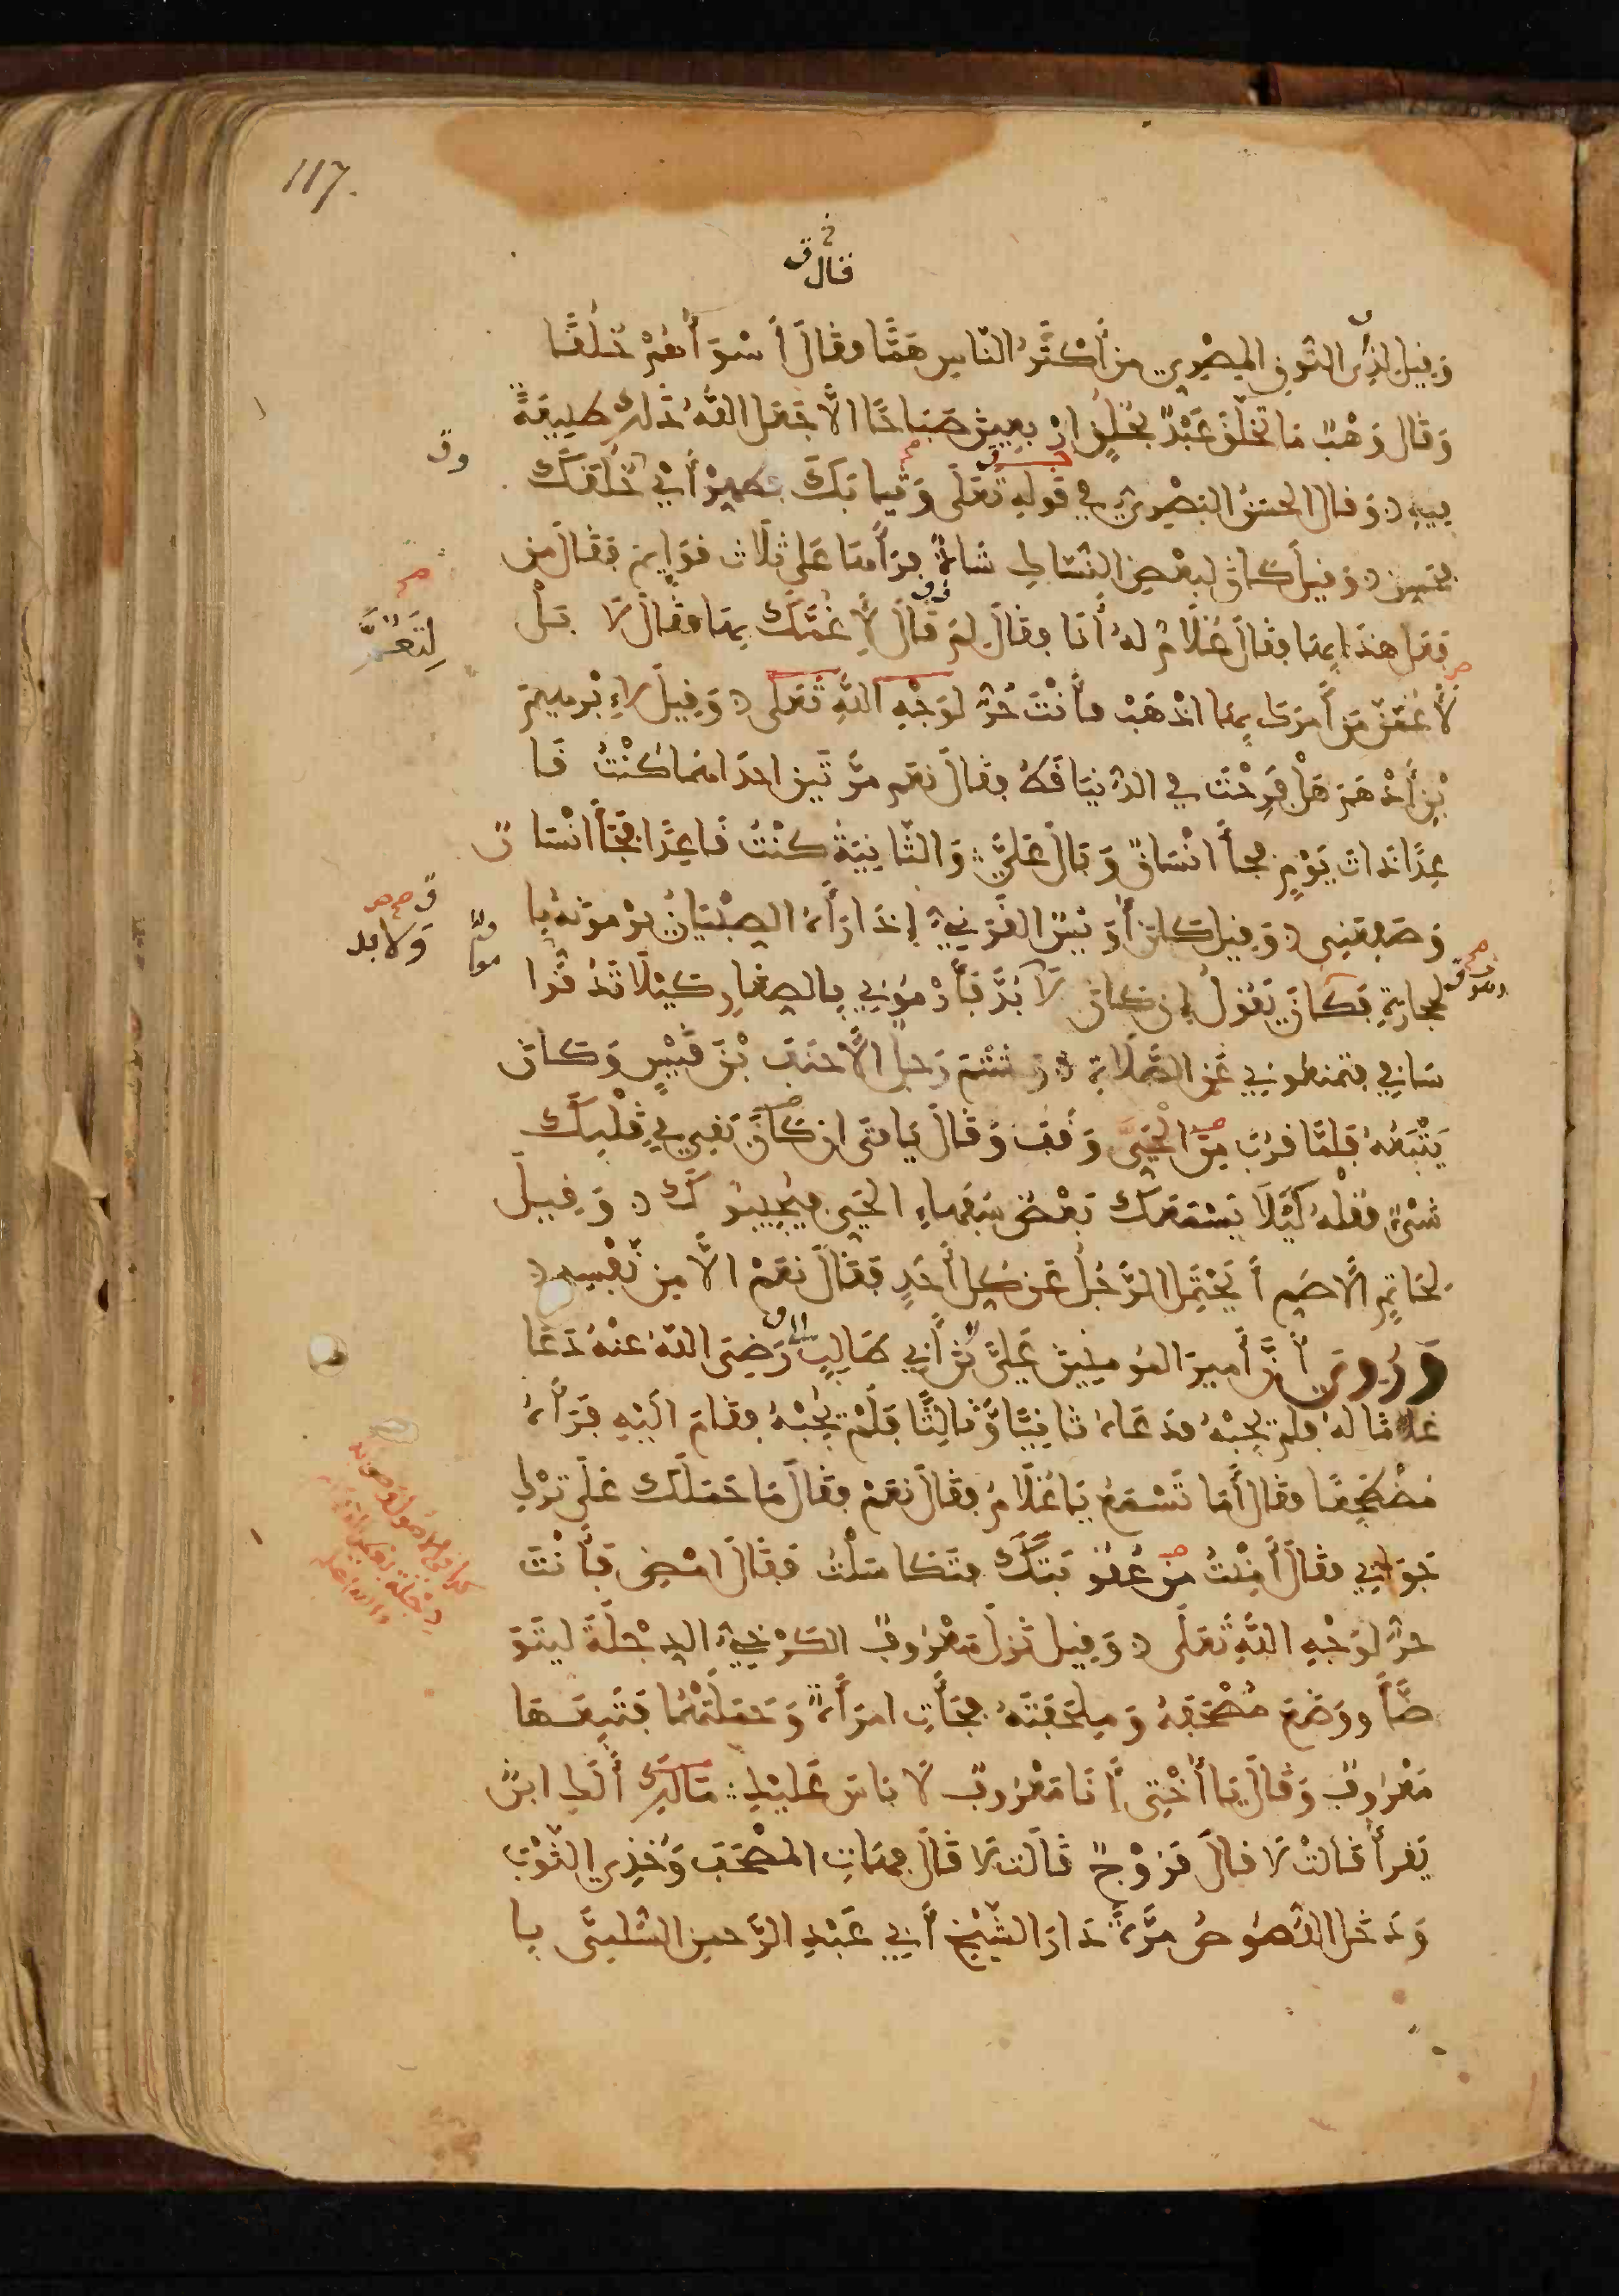 117.
قال
وَقِيلَ لِذِي النُّونِ المِصْرِي مَنْ أَكْثَرُ النَّاسِ هَمًّا فقَالَ أَسْوَأُهُمْ خُلُقًا
وَقَال وَهْبٌ مَا تَخَلَّقَ عَبْدٌ بِخُلُقٍ ارْبعِينَ صَبَاحًا الاَّ جَعَلَ اللَّهُ ذَلِكَ طَبِيعَةً
فِيهِ وَقَال الحَسَنُ البَصْرِيُّ فِي قَولِهِ تَعَلَى وَثِيَابَكَ فَطَهِّرْ أَيْ خُلُقَكَ
فحَسِّن وَقِيلَ كَانَ لِبَعْضِ النُّسَّاكِ شَاةٌ فرَأَىهَا عَلَى ثلَاث قوَايِم فقَالَ مَن
فَعَل هذَا بِهَا فقَالَ غُلَامٌ لهُ أَنَا فقَالَ لِمَ قَالَ لأَغُمَّكَ بِهَا فقَالَ لَا بَلْ
لأَغُمَّنَّ مَن أَمَرَكَ بِهَا اذْهَبْ فأَنْتَ حُرٌّ لوَجْهِ اللَّهِ تَعَلَى وَقِيلَ لإِبْرهِيمَ
بْنِ أَدْهَمَ هَلْ فَرِحْتَ فِي الدُّنْيَا قَطُّ فقَالَ نعَم مَرَّتَيْنِ احدَاهُمَا كُنْتُ قَا
عِدًا ذَات يَوْمٍ فجَأَ انْسَانٌ وَبَالَ عَلَيَّ وَالثَّانِيَةُ كُنْتُ قَاعِدًا فجَأَ انْسَانٌ
وَصَفعَنِي وَقِيلَ كَانَ أُوَيْسٌ القَرَنِيُّ إذَا رَأَىهُ الصِّبْيَانُ يرْمونَهُ با
لحجَارَةِ فَكَانَ يَقُولُ إن كانَ لاَ بُدَّ فَأرْمُونِي بِالصِّغَارِ كَيْلَا تَدُقُّوا
سَاقِي فتَمْنَعُونِي عَنِ الصَّلَاة وَشَتَمَ رَجلٌ الأَحنَفَ بْنَ قَيْسٍ وَكَانَ
يَتْبَعُهُ فلمَّا قرُبَ مِنَ الحَيِّ وَقَفَ وَقَالَ يَا فتَى ان كَانَ بَقِيَ فِي قَلْبِكَ
شَيْءٌ فقُلْهُ كَيْلَا يَسْمَعَكَ بَعْضُ سُفَهَاءِ الحَيِّ فيُجِيبُوكَ وَقِيلَ
لِحَاتِمٍ الأَصَمِّ أَيَحْتَمِلُ الرَّجُلُ عَن كُلِّ أَحَدٍ فقَالَ نَعَمْ الاَّ مِن نَفْسِهِ
وَرُوِيَ أَنَّ أَمِيرَ المُؤمِنِينَ عَلِيَّ بْنَ أَبِي طَالِبٍ رَضِيَ اللَّهُ عَنْهُ دَعَا
غُلَامًا لهُ فلَم يُجِبْهُ فدَعَاهُ ثَانِيًا وَّثالِثًا فلَمْ يُجِبْهُ فقَامَ اليْهِ فرَأَىهُ
مُضْطَجِعًا فقَالَ أَمَا تَسْمَعُ يَا غُلَامُ فقَالَ نَعَمْ فقَالَ مَا حَمَلَكَ عَلَى تَرْكِ
جَوَابِي فقَالَ أَمِنْتُ مِن عُقُوبَتِكَ فتَكَاسَلْتُ فقَالَ امْضِي فَأَنْتَ
حرٌّ لوَجْهِ اللَّهِ تَعَلَى وَقِيلَ نَزلَ مَعْرُوفٌ الكَرْخِيُّ الدِّجْلَةَ ليَتَوَ
ضَّأَ ووَضَعَ مُصْحَفَهُ وَمِلْحَفَتَهُ فجَأَتِ امْرَأَةٌ وَحَمَلَتْهُمَا فتَبِعَهَا
مَعْرُوفٌ وَقَالَ يَا أُخْتِي أَنَا مَعْرُوفٌ لَا بَاسَ عَلَيْكِ أَلَكِ ابنٌ
يَقْرَأُ قَالَتْ لَا قَالَ فَزَوْجٌ قَالَتْ لَا قَالَ فهَاتِ المُصْحَفَ وَخُذِي الثَّوْبَ
وَدَخَلَ اللُّصُوصُ مَرَّةً دَارَ الشَّيْخِ أَبِي عَبْدِ الرَّحمنِ السُّلمِيِّ با
وق
لِتَغُمَّ
وَلابد